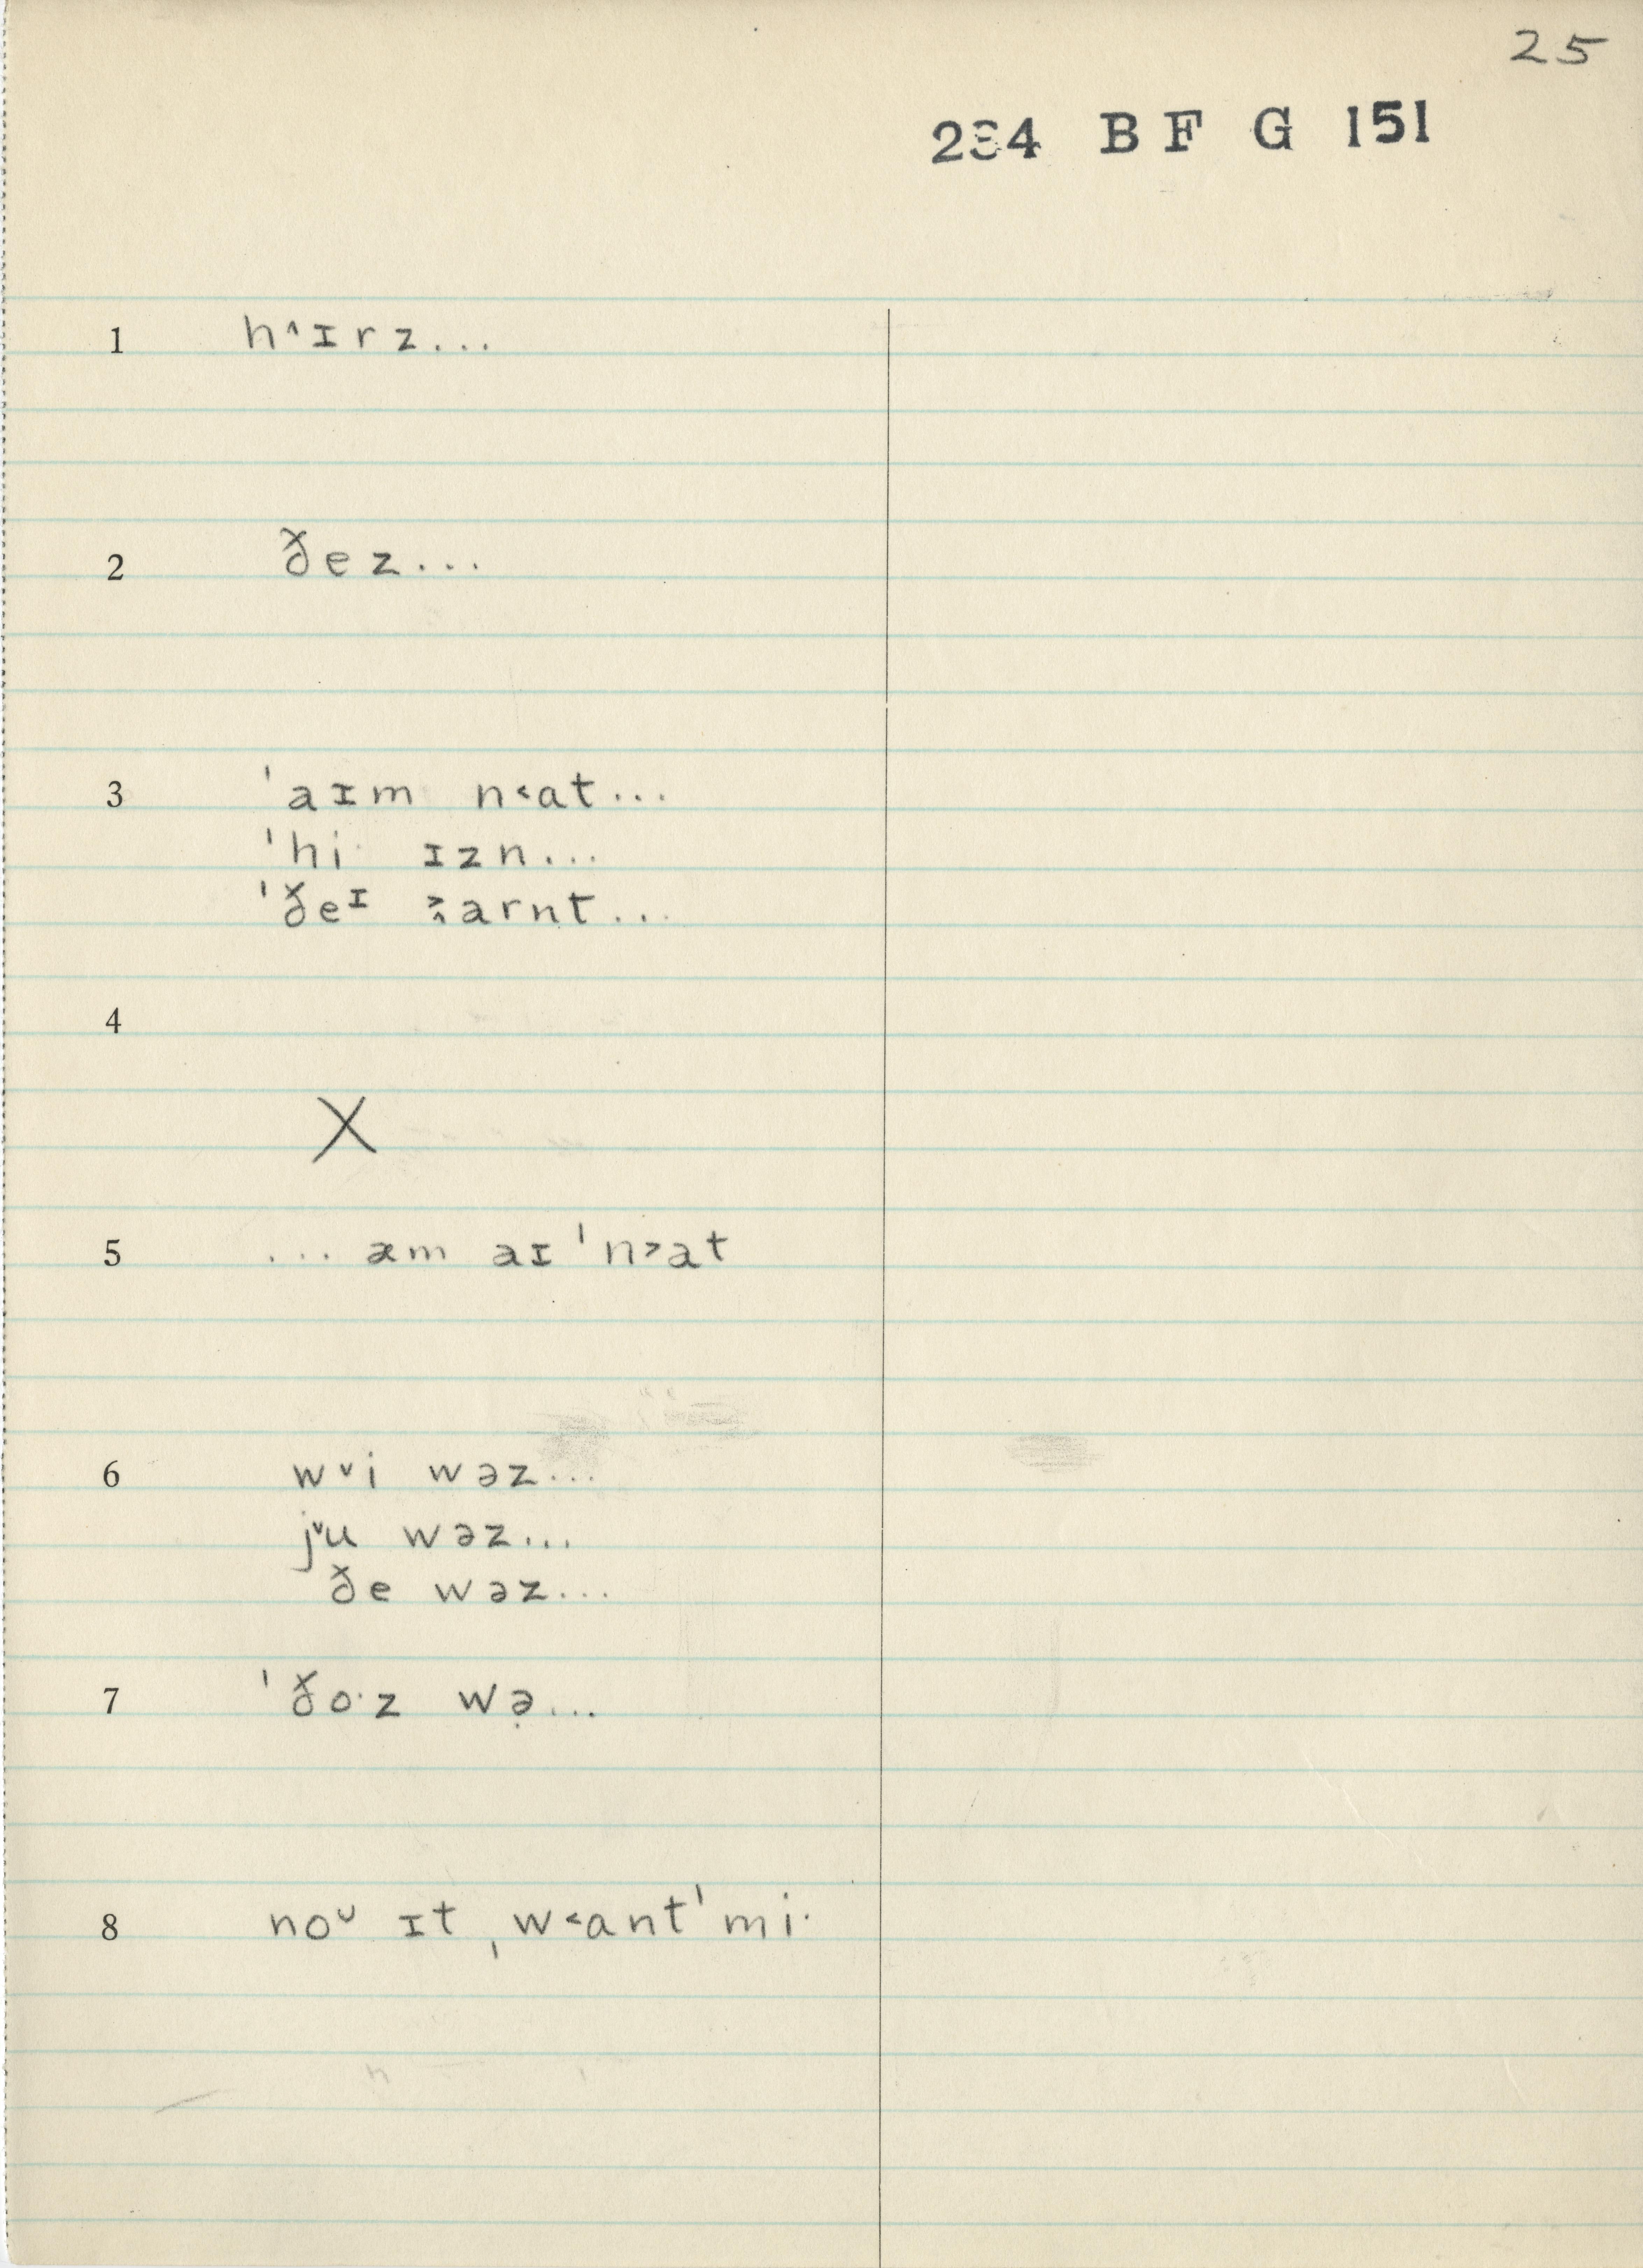 25
234 BF G 151
1 h˄ɪrz...
2 ðez...
3 ˈaɪm n˂at...
ˈhi· ɪzn...
ˈðeᶦ ˲arnt...
4
X
5 ...æm aɪˈn˃at
6 w˅i wəz...
j˅u wəz...
ðe wəz...
7 ˈðo·z wə̣...
8 noᶸ ɪt ˌw˂antˈmi·